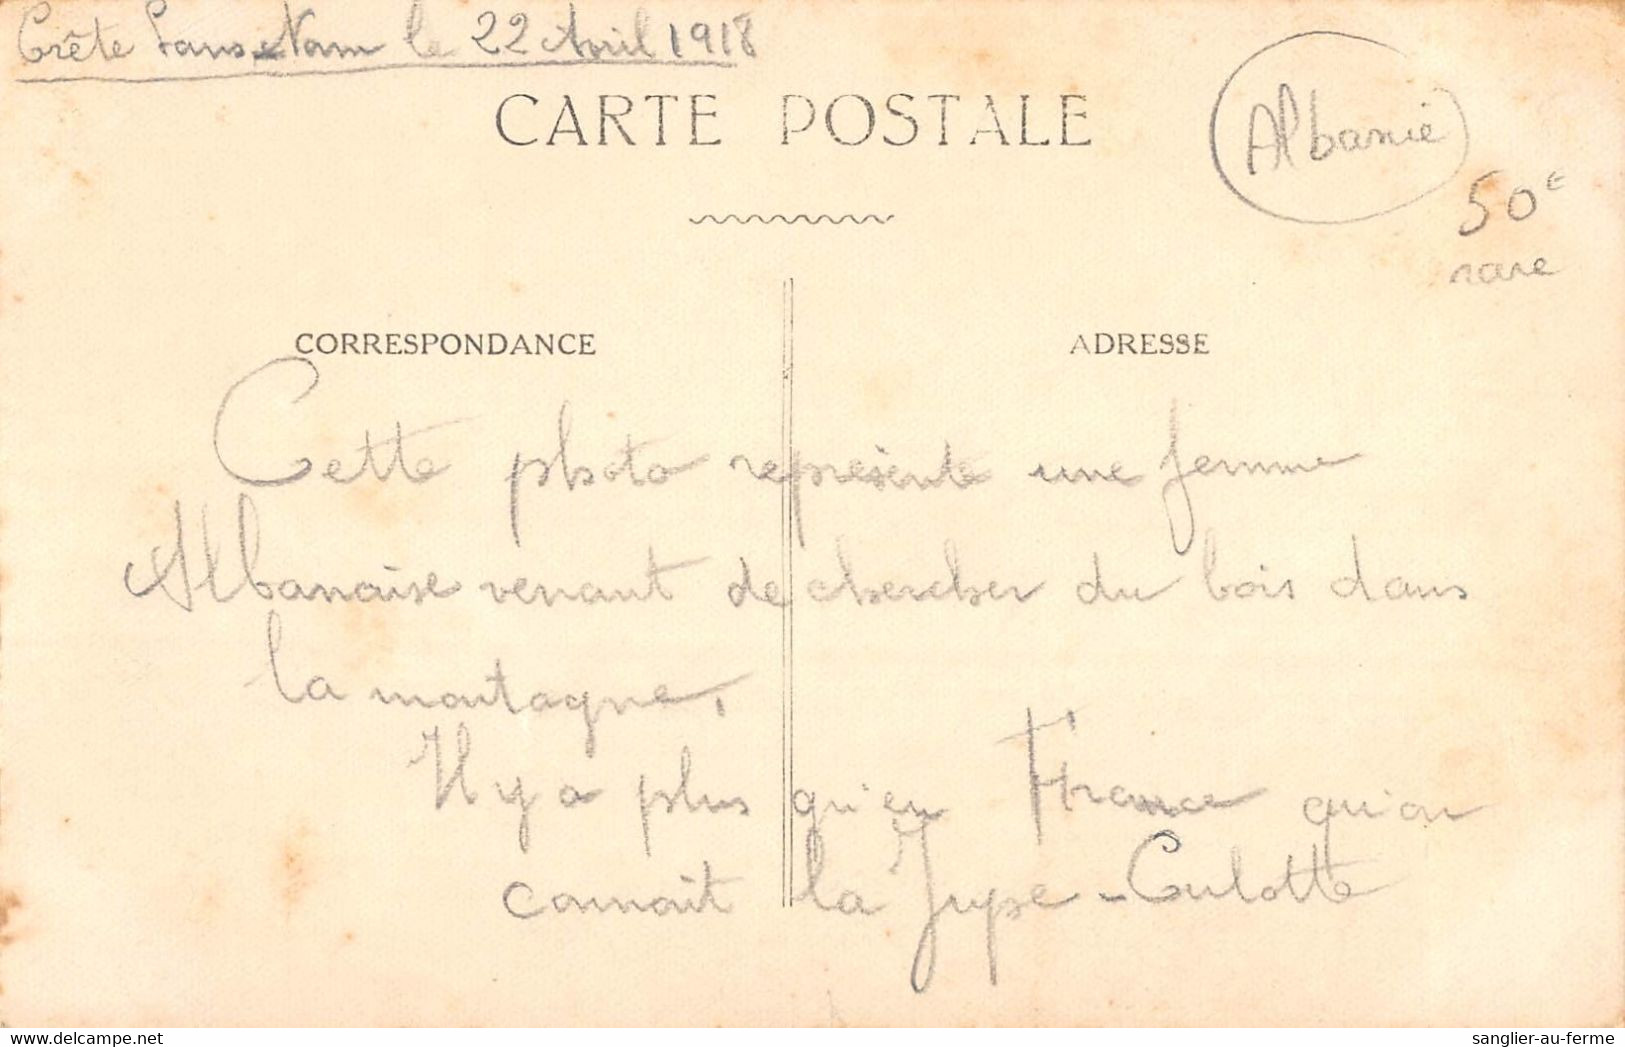 Crête Sans-Nom le 22 Avril 1918
CARTE POSTALE
Albanie
50€
rare
CORRESPONDANCE
ADRESSE
Cette photo représente une femme
Albanaise venant de chercher du bois dans
la montagne,
Il y a plus qu'en France qu'on
connait la Jupe-Culotte
sanglier-au-ferme